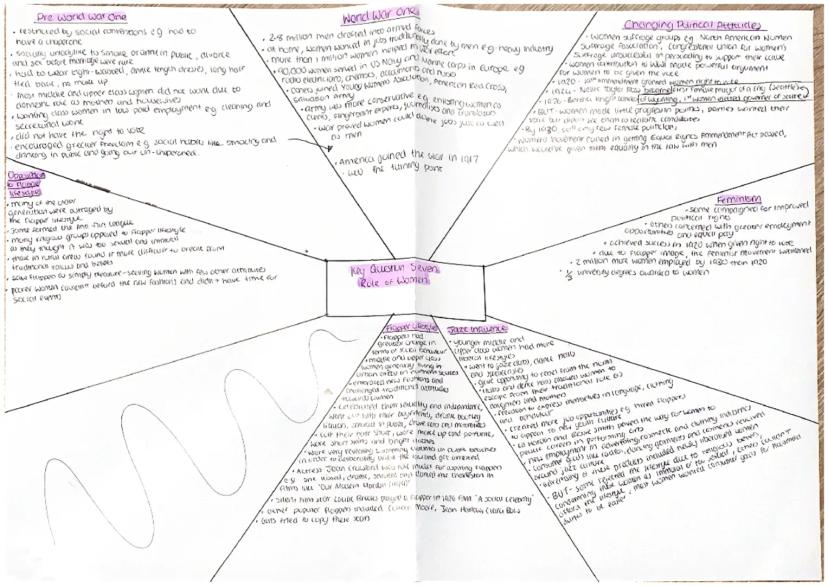 Pre World War One
• restricted by social conventions eg had to
have a chaperone
• socially unacceptable to smoke or drink in public, divorce
and sex before marriage were rare
• had to wear tight-waisted, ankle length dresses, long hair
tied back, no make up
• most middle and upper class women did not work due to
domestic role as mothers and housewives
• working class women in low paid employment eg cleaning and
secretarial work
• did not have the right to vote
• encouraged greater freedom eg social habits like smoking and
drinking in public and going out un-chaperoned.
World War One
• 2.8 million men drafted into armed forces
• at home, women worked in jobs traditionally done by men eg heavy industry
• more than 1 million women helped in war effort
• 90,000 women served in US Navy and Marine Corps in Europe eg
radio electricians, chemists, accountants and nurses
• others joined Young Women's Association, American Red Cross,
Salvation Army
• Army was more conservative eg enlisting women as
clerks, fingerprint experts, journalists and translators
• war proved women could do the jobs just as well
as men
• America joined the war in 1917
- was the turning point
Changing Political Attitudes
• Women suffrage groups eg North American Women
Suffrage Association, Congressional Union for Women's
Suffrage unsuccessful in persuading to support their cause
• Women contribution in WWI made powerful argument
for women to be given the vote
• 1920 - 19th amendment granted women right to vote
• 1924 - Nellie Tayloe Ross became first female mayor of a city (Seattle)
of Wyoming, 1st woman elected governor of a state
• BUT: Women made little progress in politics, parties wanted their
vote but didn't see them as realistic candidates
• By 1920 still only few female politicians
• Women's movement failed in getting Equal Rights Ammendment Act passed,
which would've given them equality in the law with men
Opposition
to flapper
lifestyles
• many of the older
generation were outraged by
the flapper lifestyle
• Some formed the anti-flirt league
• many religious groups opposed to flapper lifestyle
as they thought it was too sexual and immoral
• those in rural areas found it more difficult to break from
traditional values and beliefs
• saw flappers as simply pleasure-seeking women with few other attributes
• poorer women couldn't afford the new fashions and didn't have time for
social events
Feminism
• some campaigned for improved
political rights
• others concerned with greater employment
opportunities and equal pay
• achieved success in 1920 when given right to vote
• due to flapper image, the feminist movement weakened
• 2 million more women employed by 1930 than 1920
• 1/3 university degrees awarded to women
Key Question Seven:
Role of Women
Flapper Lifestyle
• flappers had
greatest change in
terms of social behaviour
• middle and upper class
women generally living in
urban areas in northern states
• embraced new fashions and
challenged traditional attitudes
towards women
• celebrated their sexuality and independence,
went out with their boyfriends, drank bootleg
liquor, smoked in public, drove cars and motorbikes
• cut their hair short, wore make up and perfume,
wore short skirts and bright clothes
• wore very revealing swimming costumes on public beaches
in order to deliberately break the law and get arrested
• Actress Joan Crawford was role model for aspiring flappers
eg she kissed, drank, smoked and danced the Charleston in
films like "Our Modern Maidens (1929)"
• Silent film star Louise Brooks played a flapper in 1926 film "A Social Celebrity"
• other popular flappers included Colleen Moore, Jean Harlow, Clara Bow
• Girls tried to copy these icons
Jazz Influence
• younger middle and
upper class women had more
liberal lifestyles
• went to jazz clubs, dance halls
and speakeasies
• give opportunity to rebel from the norm
• clubs and dance halls allowed women to
escape from their traditional role as
daughters and mothers
• freedom to express themselves in language, clothing
and behaviour
• created more job opportunities eg hired flappers
to appeal to new youth culture
• Lil Hardin and Bessie Smith paved the way for women to
pursue careers in performing arts
• new employment in advertising, cosmetic and clothing industries
• consumer goods like radios, dancing garments and cosmetics revolved
around jazz culture
• advertising of these products included newly liberated women
• BUT - some rejected the lifestyle due to religious beliefs,
condemning these women as immoral or too radical, others couldn't
afford the lifestyle, most women wanted consumer goods for household
duties to be easier